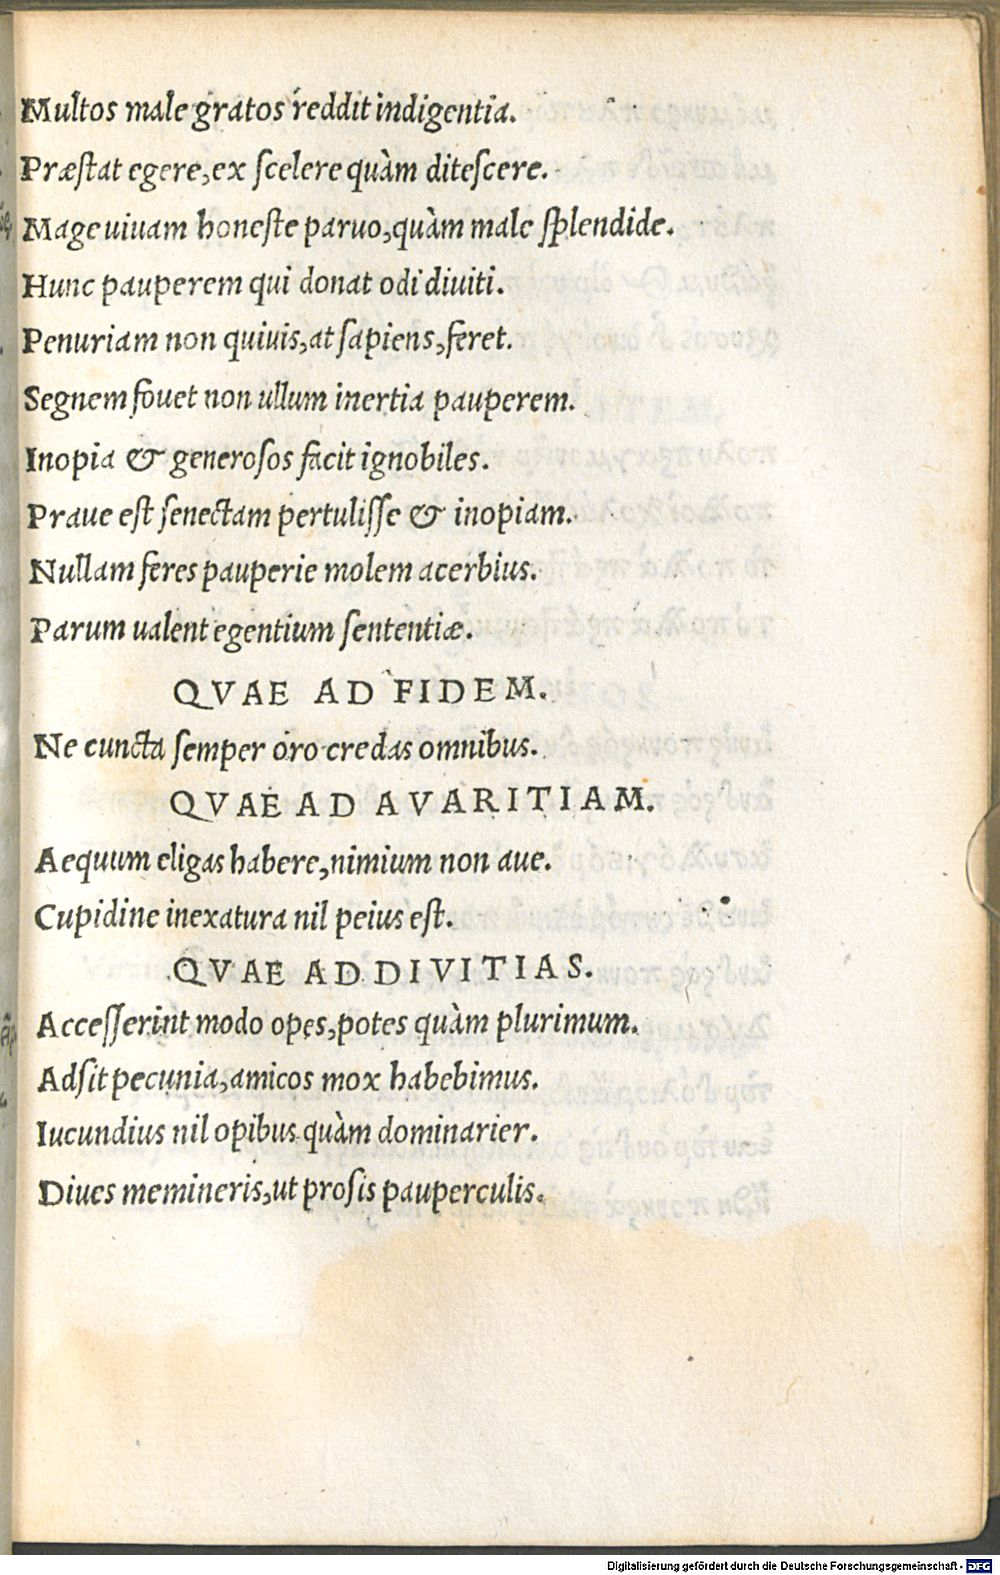 Multos male gratos reddit indigentia.
Præstat egere, ex scelere quàm ditescere.
Mage uiuam honeste paruo, quàm male splendide.
Hunc pauperem qui donat odi diuiti.
Penuriam non quiuis, at sapiens, feret.
Segnem fouet non ullum inertia pauperem.
Inopia & generosos facit ignobiles.
Praue est senectam pertulisse & inopiam.
Nullam feres pauperie molem acerbius.
Parum ualent egentium sententiæ.
QVAE AD FIDEM.
Ne cuncta semper oro credas omnibus.
QVAE AD AVARITIAM.
Aequum eligas habere, nimium non aue.
Cupidine inexatura nil peius est.
QVAE AD DIVITIAS.
Accesserint modo opes, potes quàm plurimum.
Adsit pecunia, amicos mox habebimus.
Iucundius nil opibus quàm dominarier.
Diues memineris, ut prosis pauperculis.
Digitalisierung gefördert durch die Deutsche Forschungsgemeinschaft - DFG